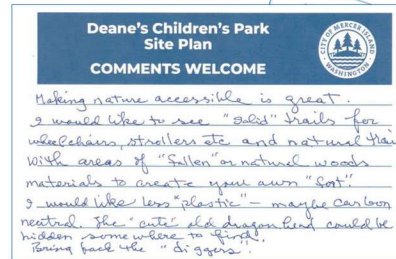 Deane's Children's Park
Site Plan
COMMENTS WELCOME
CITY OF MERCER ISLAND
WASHINGTON
Making nature accessible is great.
I would like to see "solid" trails for
wheelchairs, strollers etc and natural trai
with areas of "fallen" or natural woods
materials to create your own "fort".
I would like less "plastic" – maybe carbon
neutral. The "cute" old dragon head could be
hidden somewhere to find!
Bring back the "diggers".